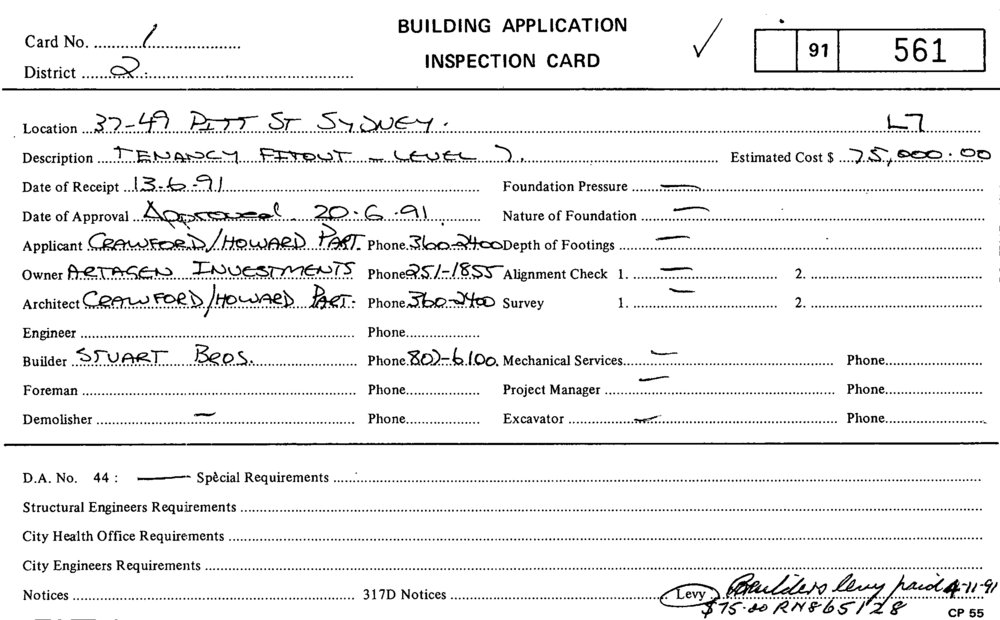 BUILDING APPLICATION
INSPECTION CARD
Card No. 1
District 2.
91 561
Location 37-49 PITT ST SYDNEY. L7
Description TENANCY FITOUT - LEVEL 7. Estimated Cost $ 75,000.00
Date of Receipt 13.6.91 Foundation Pressure —
Date of Approval Approved. 20.6.91. Nature of Foundation —
Applicant CRAWFORD/HOWARD PART. Phone 360-2400 Depth of Footings —
Owner ARTAGEN INVESTMENTS Phone 251-1855 Alignment Check 1. — 2.
Architect CRAWFORD/HOWARD PART. Phone 360-2400 Survey 1. — 2.
Engineer Phone
Builder STUART BROS. Phone 807-6100. Mechanical Services — Phone
Foreman Phone Project Manager — Phone
Demolisher — Phone Excavator — Phone
D.A. No. 44 : — Special Requirements
Structural Engineers Requirements
City Health Office Requirements
City Engineers Requirements
Notices 317D Notices Levy. Builders levy paid 4-11-91
$75.00 RN865128
CP 55